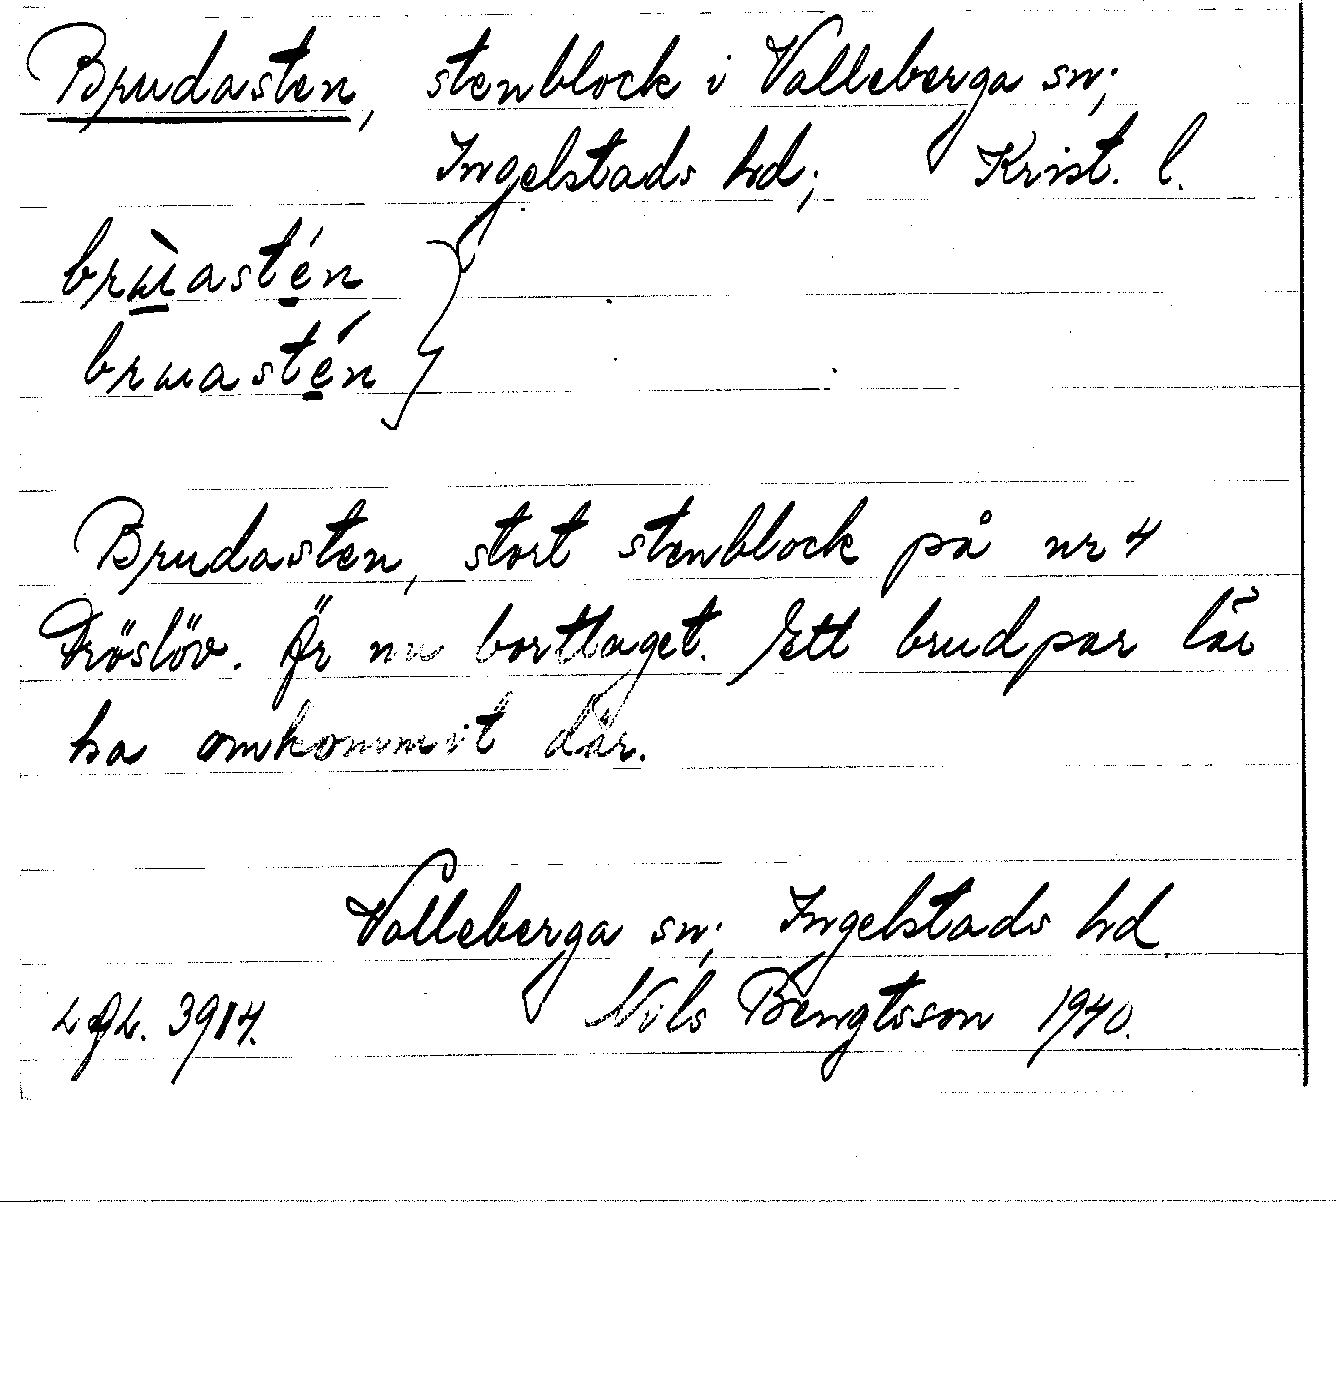 Brudasten, stenblock i Valleberga sn;
Ingelstads hd; Krist. l.
brɯ̀astén
brɯastén
Brudasten, stort stenblock på nr 4
Fröslöv. Är nu borttaget. Ett brudpar lär
ha omkommit där.
Valleberga sn; Ingelstads hd
3914. Nils Bengtsson 1940.